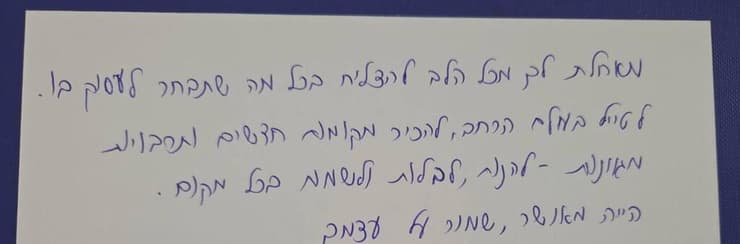 מאחלת לך מכל הלב להצליח בכל מה שתבחר לעסוק בו.
לטייל בעולם הרחב, להכיר מקומות חדשים ותרבויות
מגוונות - להנות, לבלות ולשמוח בכל מקום.
היה מאושר, שמור על עצמך